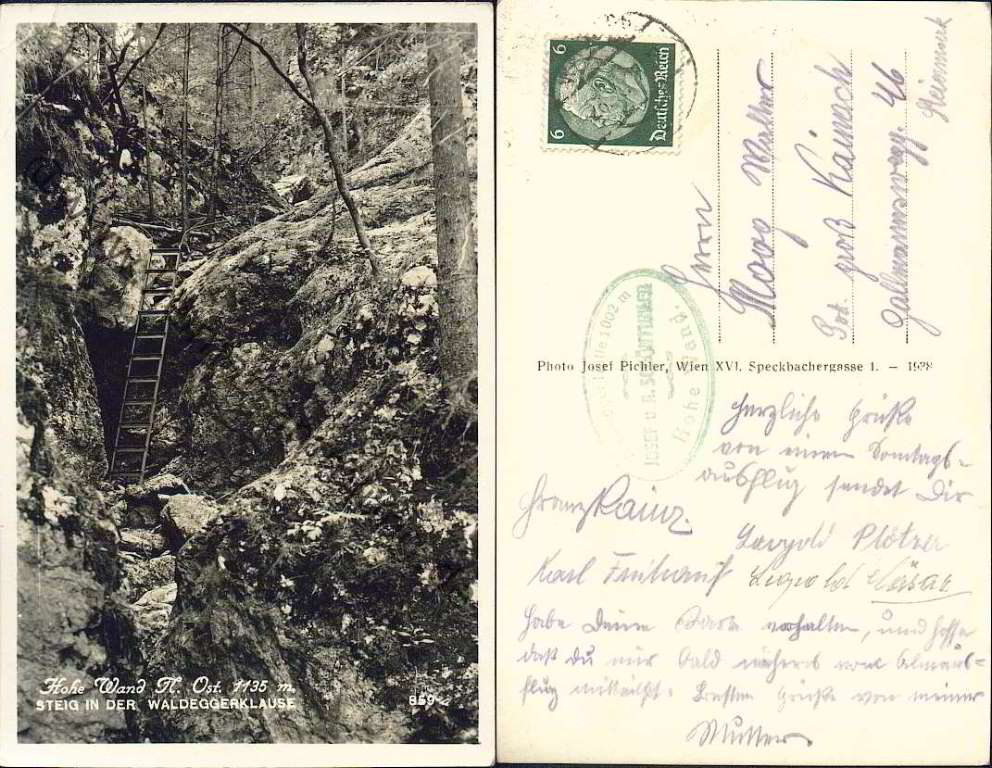 Hohe Wand N. Öst. 1135 m.
STEIG IN DER WALDEGGERKLAUSE
869
6
Deutsches Reich
6
Herrn
Moog Walter
Post. groß Kainach
46
Steiermark
1002 m
JOSEF u.
Hohe Wand.
Photo Josef Pichler, Wien XVI. Speckbachergasse 1. — 1938
Herzliche Grüße
von einem Sonntags-
ausflug sendet Dir
Franz Kainz.
Leopold
Karl Leopold
Habe Deine Karte erhalten, und hoffe
daß du mir bald näheres vom
flug mitteilst. Besten Grüße von meiner
Mutter.